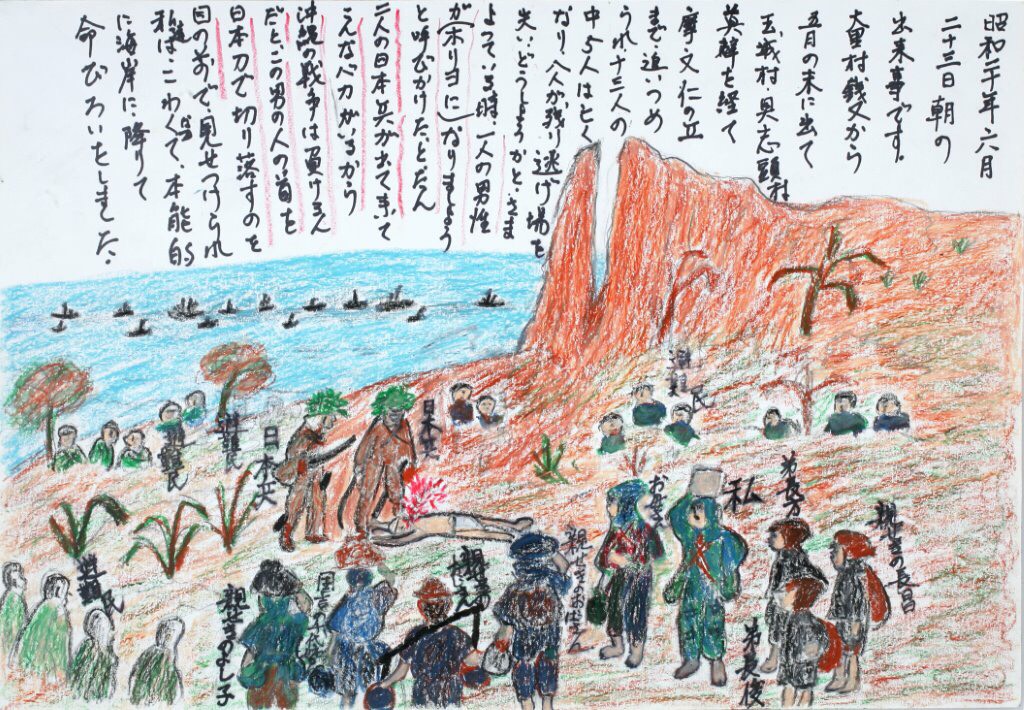 昭和二十年六月
二十三日朝の
出来事です。
大里村銭又から
五月の末に出て
玉城村、具志頭村
英韓を経て
摩文仁の丘
まで、追いつめ
られ十三人の
中5人はとく
なり、八人が残り逃げ場を
失い、どうしようかと、さま
よっている時、一人の男性
が(ホリヨに)なりましよう
と呼びかけた、とたん
二人の日本兵が出て来いて
こんなバカがいるから
沖縄の戦争は負けるん
だとこの男の人の首を
日本刀で切り落すのを
目の前で見せつけられ
私達は、こわくて、本能的
に海岸に降りて
命びろいをしました。
避難民
避難民
避難民
日本兵
日本兵
避難民
私
弟長方
親せきの長昌
弟長俊
親せきのおばさん
親せきのよし子